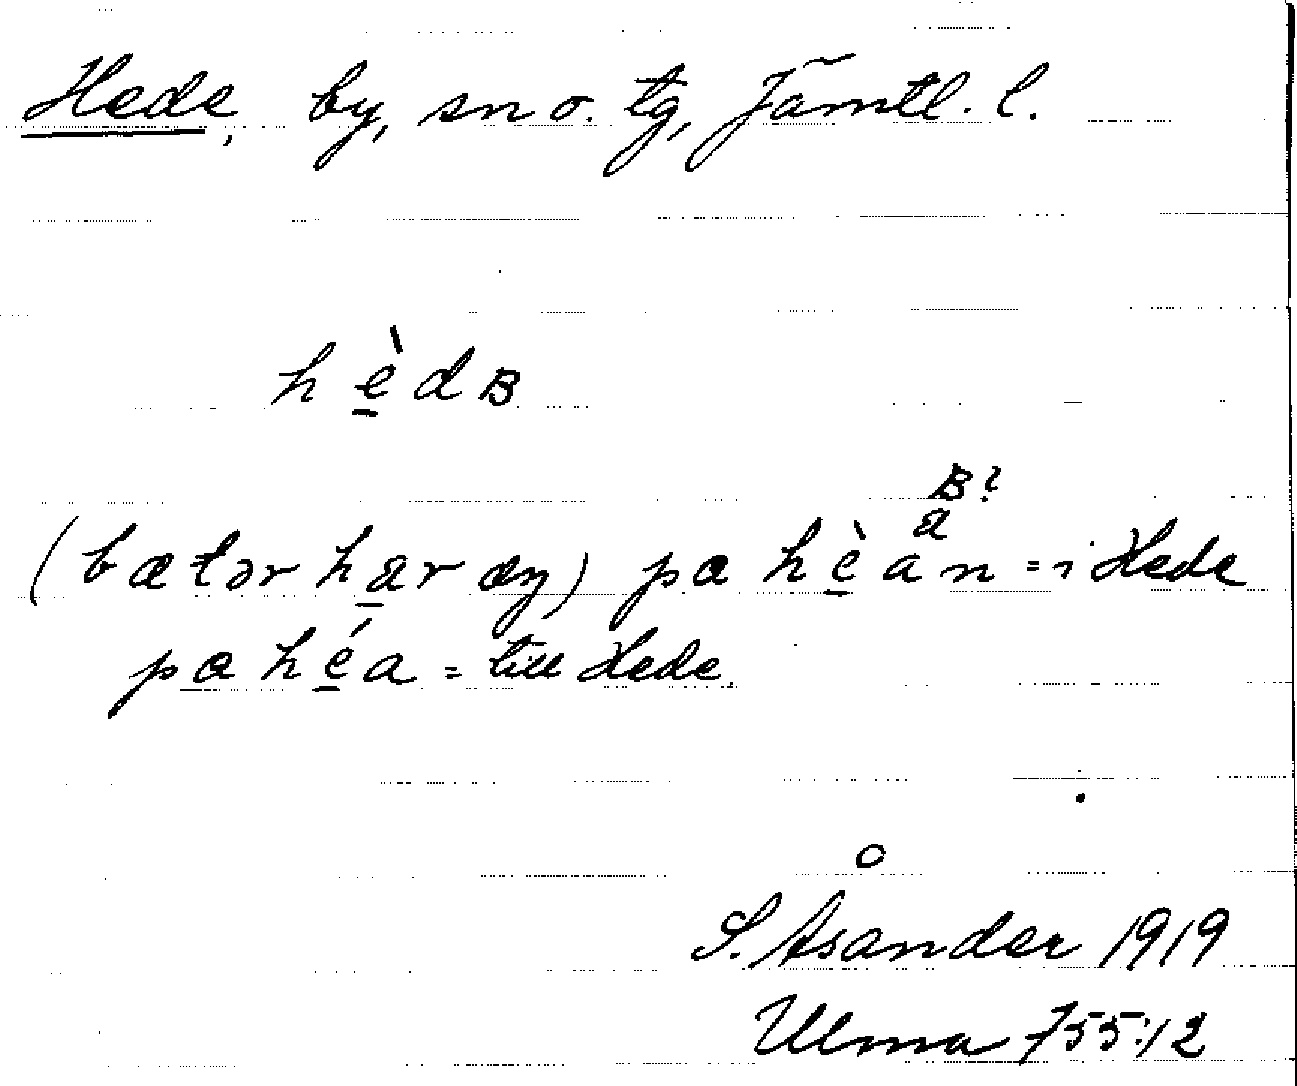 Hede, by, sn o. tg, Jämtl. l.
hè̲dʙ
ʙ?
a
(bætər ha̲r æŋ) pa hè̲an = i Hede
pa̲ hé̲a = till Hede.
S. Åsander 1919
Ulma 755:12